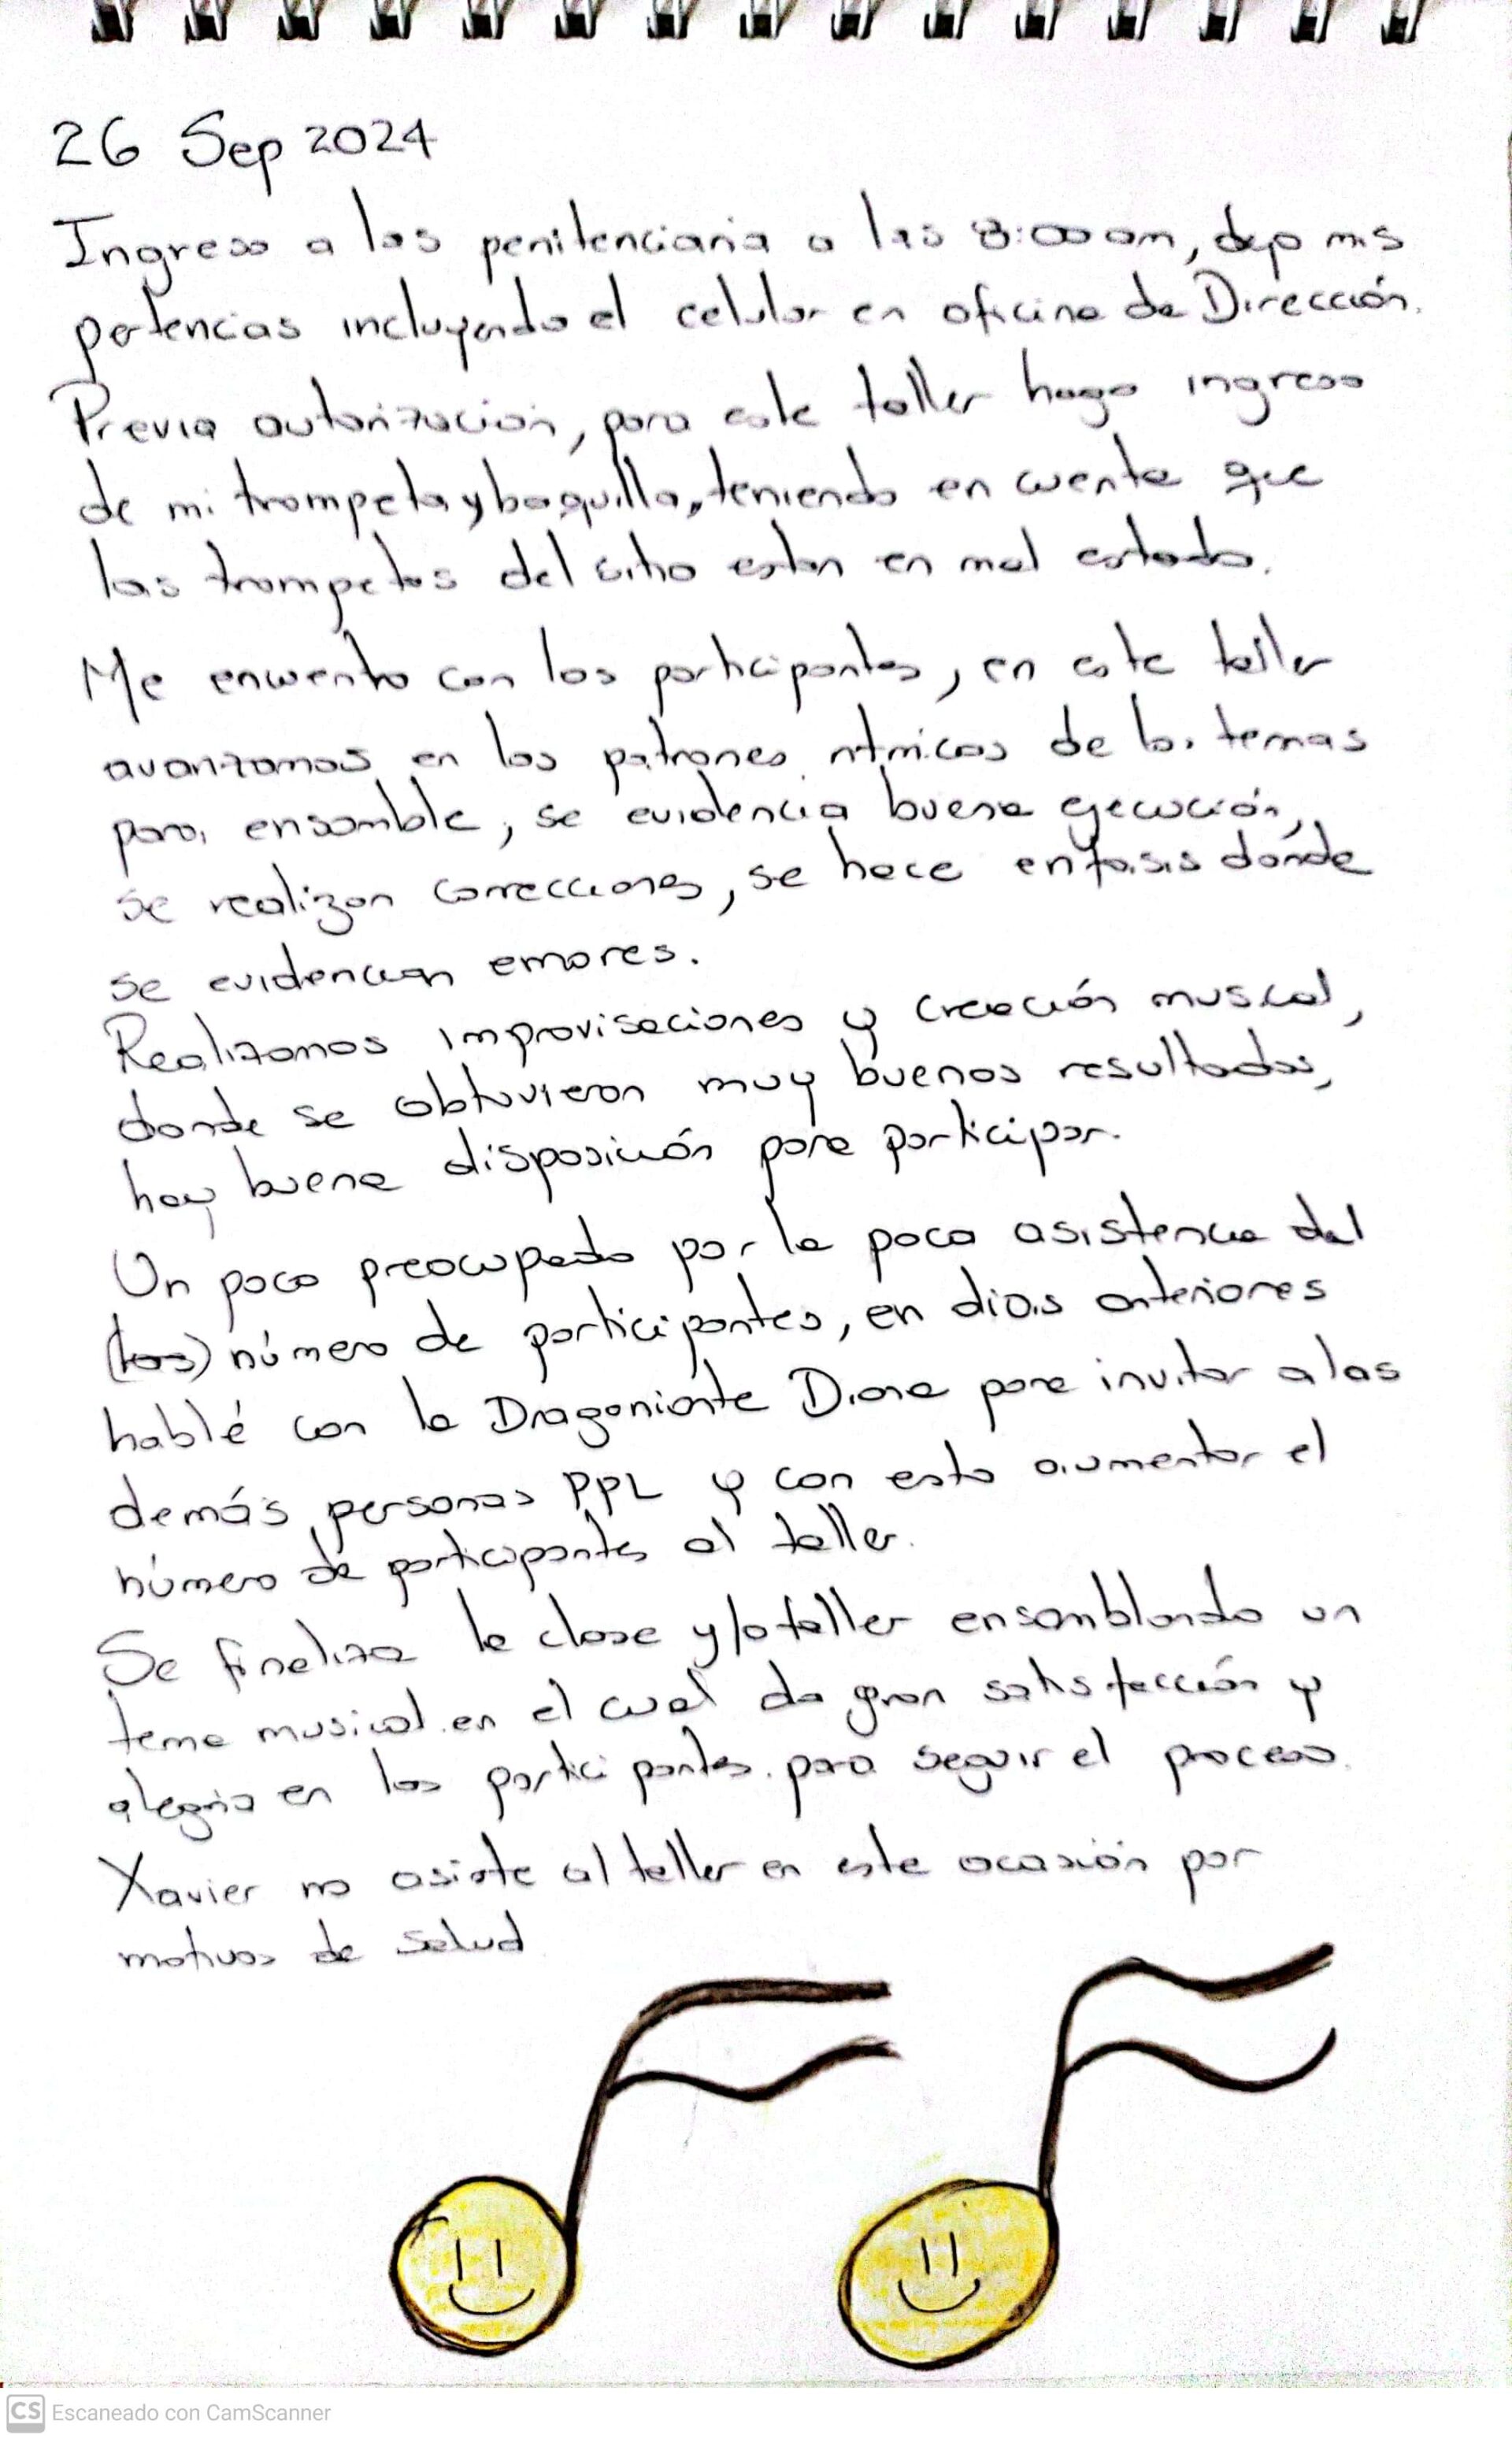 26 Sep 2024
Ingreso a las penitenciaria a las 8:00 am, dejo mis
pertencias incluyendo el celular en oficina de Dirección.
Previa autorización, para este taller hago ingreso
de mi trompeta y boquilla, teniendo en cuenta que
las trompetas del sitio estan en mal estado.
Me encuentro con los participantes, en este taller
avanzamos en los patrones ritmicos de los temas
para ensamble, se evidencia buena ejecución,
se realizan correcciones, se hace enfasis donde
se evidencian errores.
Realizamos improvisaciones y creación musical,
donde se obtuvieron muy buenos resultados,
hay buena disposición para participar.
Un poco preocupado por la poca asistencia del
(los) número de participantes, en dias anteriores
hablé con la Dragoniante Diana para invitar a las
demás personas PPL y con esto aumentar el
número de participantes al taller.
Se finaliza la clase y/o taller ensamblando un
tema musical en el cual da gran satisfacción y
alegria en los participantes para seguir el proceso.
Xavier no asiste al taller en esta ocasión por
motivos de salud
CS Escaneado con CamScanner